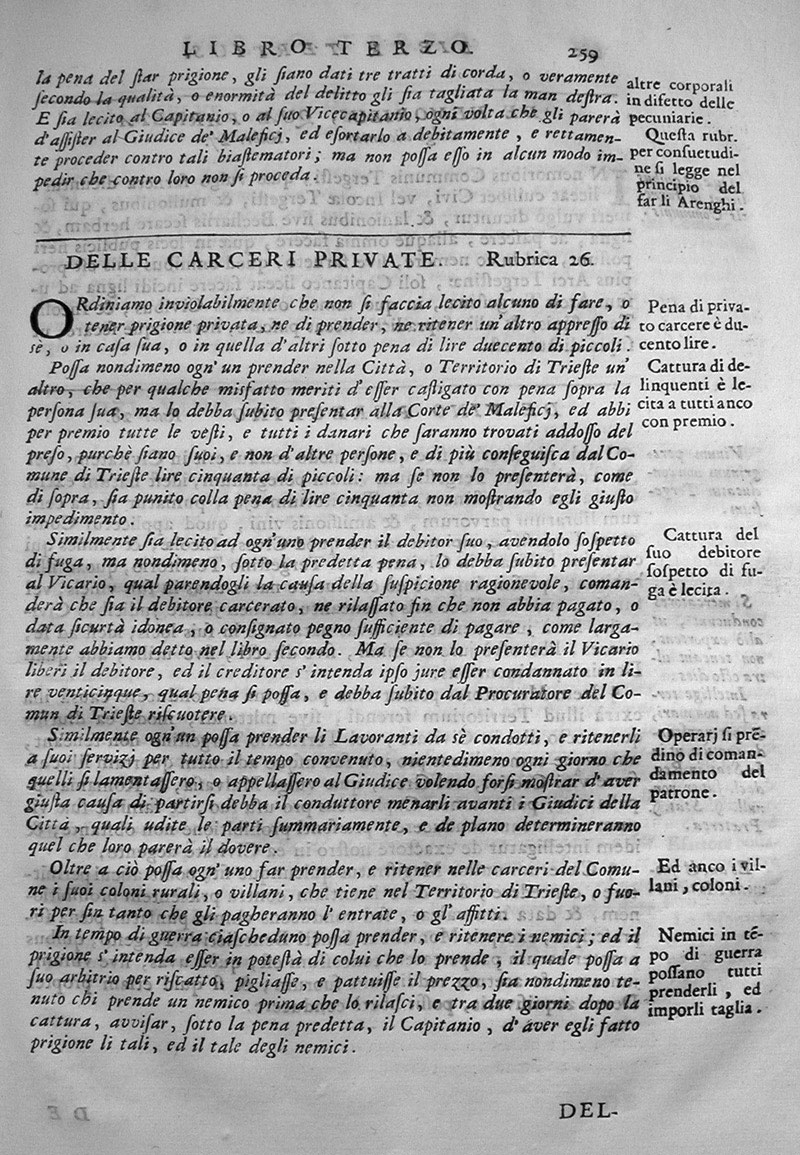 LIBRO TERZO. 259
la pena del ſtar prigione, gli ſiano dati tre tratti di corda, o veramente
ſecondo la qualità, o enormità del delitto gli ſia tagliata la man deſtra.
E ſia lecito al Capitanio, o al ſuo Vicecapitanio, ogni volta che gli parerà
d'aſſiſter al Giudice de' Maleficj, ed eſortarlo a debitamente, e rettamen-
te proceder contro tali biaſtematori; ma non poſſa eſſo in alcun modo im-
pedir che contro loro non ſi proceda.
altre corporali
in difetto delle
pecuniarie.
Queſta rubr.
per conſuetudi-
ne ſi legge nel
principio del
far li Arenghi.
DELLE CARCERI PRIVATE. Rubrica 26.
ORdiniamo inviolabilmente che non ſi faccia lecito alcuno di fare, o
tener prigione privata, ne di prender, ne ritener un'altro appreſſo di
sè, o in caſa ſua, o in quella d'altri ſotto pena di lire duecento di piccoli.
Pena di priva-
to carcere è du-
cento lire.
Poſſa nondimeno ogn'un prender nella Città, o Territorio di Trieſte un'
altro, che per qualche misfatto meriti d'eſſer caſtigato con pena ſopra la
perſona ſua, ma lo debba ſubito preſentar alla Corte de' Maleficj, ed abbi
per premio tutte le veſti, e tutti i danari che ſaranno trovati addoſſo del
preſo, purchè ſiano ſuoi, e non d'altre perſone, e di più conſeguiſca dal Co-
mune di Trieſte lire cinquanta di piccoli: ma ſe non lo preſenterà, come
di ſopra, ſia punito colla pena di lire cinquanta non moſtrando egli giuſto
impedimento.
Cattura di de-
linquenti è le-
cita a tutti anco
con premio.
Similmente ſia lecito ad ogn'uno prender il debitor ſuo, avendolo ſoſpetto
di fuga, ma nondimeno, ſotto la predetta pena, lo debba ſubito preſentar
al Vicario, qual parendogli la cauſa della ſuſpicione ragionevole, coman-
derà che ſia il debitore carcerato, ne rilaſſato fin che non abbia pagato, o
data ſicurtà idonea, o conſignato pegno ſufficiente di pagare, come larga-
mente abbiamo detto nel libro ſecondo. Ma ſe non lo preſenterà il Vicario
liberi il debitore, ed il creditore s'intenda ipſo jure eſſer condannato in li-
re venticinque, qual pena ſi poſſa, e debba ſubito dal Procuratore del Co-
mun di Trieſte riſcuotere.
Cattura del
ſuo debitore
ſoſpetto di fu-
ga è lecita.
Similmente ogn'un poſſa prender li Lavoranti da sè condotti, e ritenerli
a ſuoi ſervizj per tutto il tempo convenuto, nientedimeno ogni giorno che
quelli ſi lamentaſſero, o appellaſſero al Giudice volendo forſi moſtrar d'aver
giuſta cauſa di partirſi debba il conduttore menarli avanti i Giudici della
Città, quali udite le parti ſummariamente, e de plano determineranno
quel che loro parerà il dovere.
Operarj ſi prē-
dino di coman-
damento del
patrone.
Oltre a ciò poſſa ogn'uno far prender, e ritener nelle carceri del Comu-
ne i ſuoi coloni rurali, o villani, che tiene nel Territorio di Trieſte, o fuo-
ri per fin tanto che gli pagheranno l'entrate, o gl'affitti.
Ed anco i vil-
lani, coloni.
In tempo di guerra ciaſcheduno poſſa prender, e ritenere i nemici; ed il
prigione s'intenda eſſer in poteſtà di colui che lo prende, il quale poſſa a
ſuo arbitrio per riſcatto, pigliaſſe, e pattuiſſe il prezzo, ſia nondimeno te-
nuto chi prende un nemico prima che lo rilaſci, e tra due giorni dopo la
cattura, avviſar, ſotto la pena predetta, il Capitanio, d'aver egli fatto
prigione li tali, ed il tale degli nemici.
Nemici in tē-
po di guerra
poſſano tutti
prenderli, ed
imporli taglia.
DEL-